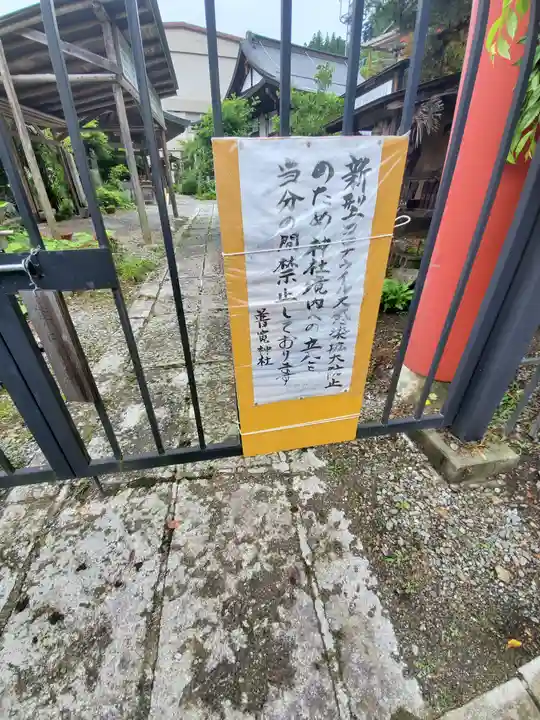 新型コロナウイルス感染拡大防止
のため神社境内への立入を
当分の間禁止しております
善寳寺神社